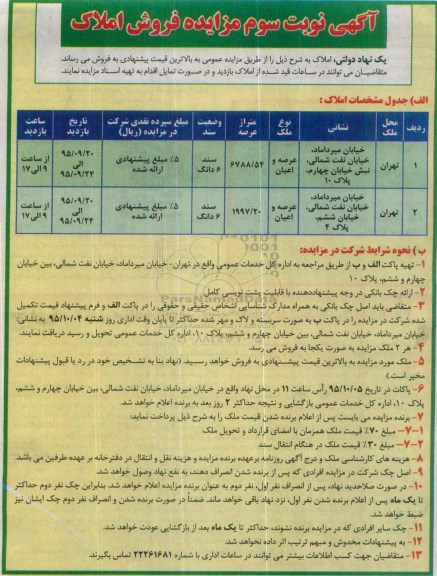 آگهی نوبت سوم مزایده فروش املاک
یک نهاد دولتی، املاک به شرح ذیل را از طریق مزایده عمومی به بالاترین قیمت پیشنهادی به فروش می رساند.
متقاضیان می توانند در ساعات قید شده از املاک بازدید و در صورت تمایل اقدام به تهیه اسناد مزایده نمایند.
الف) جدول مشخصات املاک :
ردیف | محل ملک | نشانی | نوع ملک | متراژ عرصه | وضعیت سند | مبلغ سپرده نقدی شرکت در مزایده (ریال) | تاریخ بازدید | ساعت بازدید
۱ | تهران | خیابان میرداماد، خیابان نفت شمالی، نبش خیابان چهارم، پلاک ۱۰ | عرصه و اعیان | ۶۷۸۸/۵۴ | سند ۶ دانگ | ۵٪ مبلغ پیشنهادی ارائه شده | ۹۵/۰۹/۲۰ الی ۹۵/۰۹/۲۴ | از ساعت ۹ الی ۱۷
۲ | تهران | خیابان میرداماد، خیابان نفت شمالی، خیابان ششم، پلاک ۴ | عرصه و اعیان | ۱۹۹۷/۲۰ | سند ۶ دانگ | ۵٪ مبلغ پیشنهادی ارائه شده | ۹۵/۰۹/۲۰ الی ۹۵/۰۹/۲۴ | از ساعت ۹ الی ۱۷
ب) نحوه شرایط شرکت در مزایده:
۱- تهیه پاکت الف و ب از طریق مراجعه به اداره کل خدمات عمومی واقع در تهران- خیابان میرداماد، خیابان نفت شمالی، بین خیابان
چهارم و ششم، پلاک ۱۰
۲- ارائه چک بانکی در وجه پیشنهاددهنده با قابلیت پشت نویسی کامل
۳- متقاضی باید اصل چک بانکی به همراه مدارک شناسایی اشخاص حقیقی و حقوقی را در پاکت الف و فرم پیشنهاد قیمت تکمیل
شده شرکت در مزایده را در پاکت ب به صورت سربسته و لاک و مهر شده حداکثر تا پایان وقت اداری روز شنبه ۹۵/۱۰/۰۴ به نشانی:
خیابان میرداماد، خیابان نفت شمالی، بین خیابان چهارم و ششم، پلاک ۱۰، اداره کل خدمات عمومی تحویل و رسید دریافت نمایند.
۴- هر ۲ ملک مزایده به صورت یکجا به فروش می رسد.
۵- ملک مورد مزایده به بالاترین قیمت پیشنهادی به فروش خواهد رسید. (نهاد بنا به تشخیص خود در رد یا قبول پیشنهادات
مخیر است.)
۶- پاکات در تاریخ ۹۵/۱۰/۰۵ رأس ساعت ۱۱ در محل نهاد واقع در خیابان میرداماد، خیابان نفت شمالی، بین خیابان چهارم و ششم،
پلاک ۱۰، اداره کل خدمات عمومی بازگشایی و نتیجه حداکثر ۲ روز بعد به برنده اعلام خواهد شد.
۷- برنده مزایده می بایست پس از اعلام برنده شدن قیمت ملک را به شرح ذیل پرداخت نماید:
۷-۱- مبلغ ۷۰٪ قیمت ملک همزمان با امضای قرارداد و تحویل ملک
۷-۲- مبلغ ۳۰٪ قیمت ملک در هنگام انتقال سند
۸- هزینه های کارشناسی ملک و درج آگهی روزنامه برعهده برنده مزایده و هزینه نقل و انتقال در دفترخانه بر عهده طرفین می باشد.
۹- اصل چک شرکت در مزایده افرادی که پس از برنده شدن انصراف دهند، به نفع نهاد وصول خواهد شد.
۱۰- در صورت صلاحدید نهاد، پس از انصراف نفر اول، نفر دوم به عنوان برنده مزایده اعلام خواهد شد. بنابراین چک نفر دوم حداکثر
تا یک ماه پس از اعلام برنده شدن نفر اول، نزد نهاد باقی خواهد ماند. ضمناً در صورت برنده شدن و انصراف نفر دوم چک ایشان نیز
ضبط خواهد شد.
۱۱- چک سایر افرادی که در مزایده برنده نشوند، حداکثر تا یک ماه بعد از بازگشایی عودت خواهد شد.
۱۲- به پیشنهادات مخدوش و مبهم ترتیب اثر داده نخواهد شد.
۱۳- متقاضیان جهت کسب اطلاعات بیشتر می توانند در ساعات اداری با شماره ۲۲۲۶۱۶۸۱ تماس بگیرند.